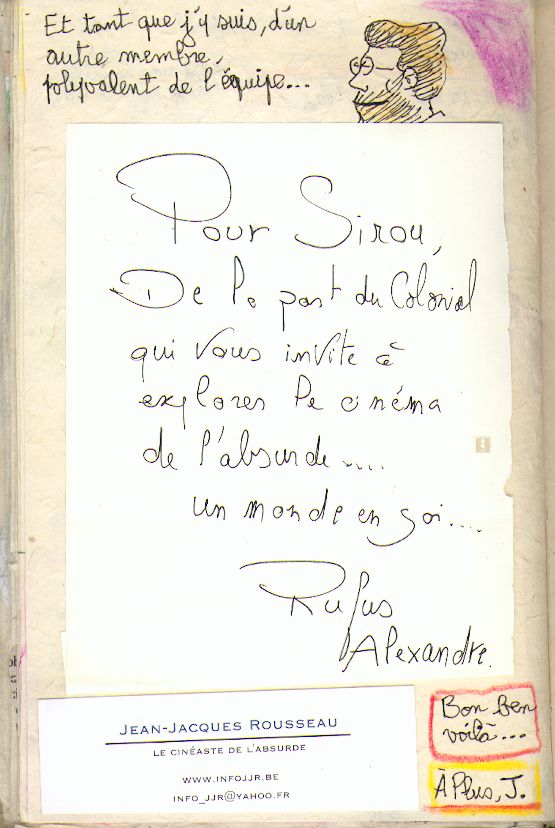 Et tant que j'y suis, d'un
autre membre,
polyvalent de l'équipe...
Pour Sirou,
De la part du Colonial
qui vous invite à
explorer le cinéma
de l'absurde....
un monde en soi....
Rufus
Alexandre.
JEAN-JACQUES ROUSSEAU
LE CINÉASTE DE L'ABSURDE
WWW.INFOJJR.BE
INFO_JJR@YAHOO.FR
Bon ben
voilà...
À Plus, J.